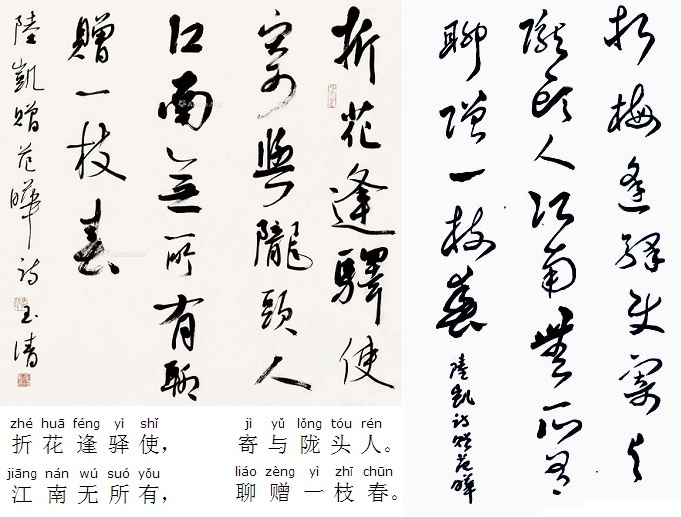 折花逢驛使
寄與隴頭人
江南無所有聊
贈一枝春
陸凱贈范曄詩 玉清
折梅逢驛使寄与
隴頭人江南無所有
聊贈一枝春
陸凱詩贈范曄
zhé huā féng yì shǐ jì yǔ lǒng tóu rén
折花逢驿使，寄与陇头人。
jiāng nán wú suó yǒu liáo zèng yì zhī chūn
江南无所有，聊赠一枝春。